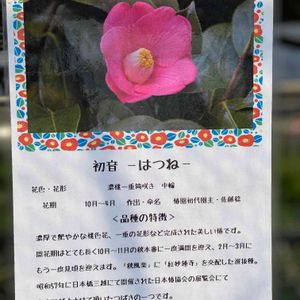 初音 −はつね−
花色・花形 濃桃一重筒咲き 中輪
花期 10月−4月 作出・命名 椿園初代園主・佐藤稔
<品種の特徴>
濃厚で艶やかな桃色花、一重の花形など完成された美しい椿です。
開花期はとても長く10月〜11月の秋本番に一度満開を迎え、2月〜3月に
もう一度見頃を迎えます。「秋風楽」に「紅妙蓮寺」を交配した選抜種。
昭和57年に日本橋三越にて開催された日本椿協会の展覧会にて
つばきの一つです。